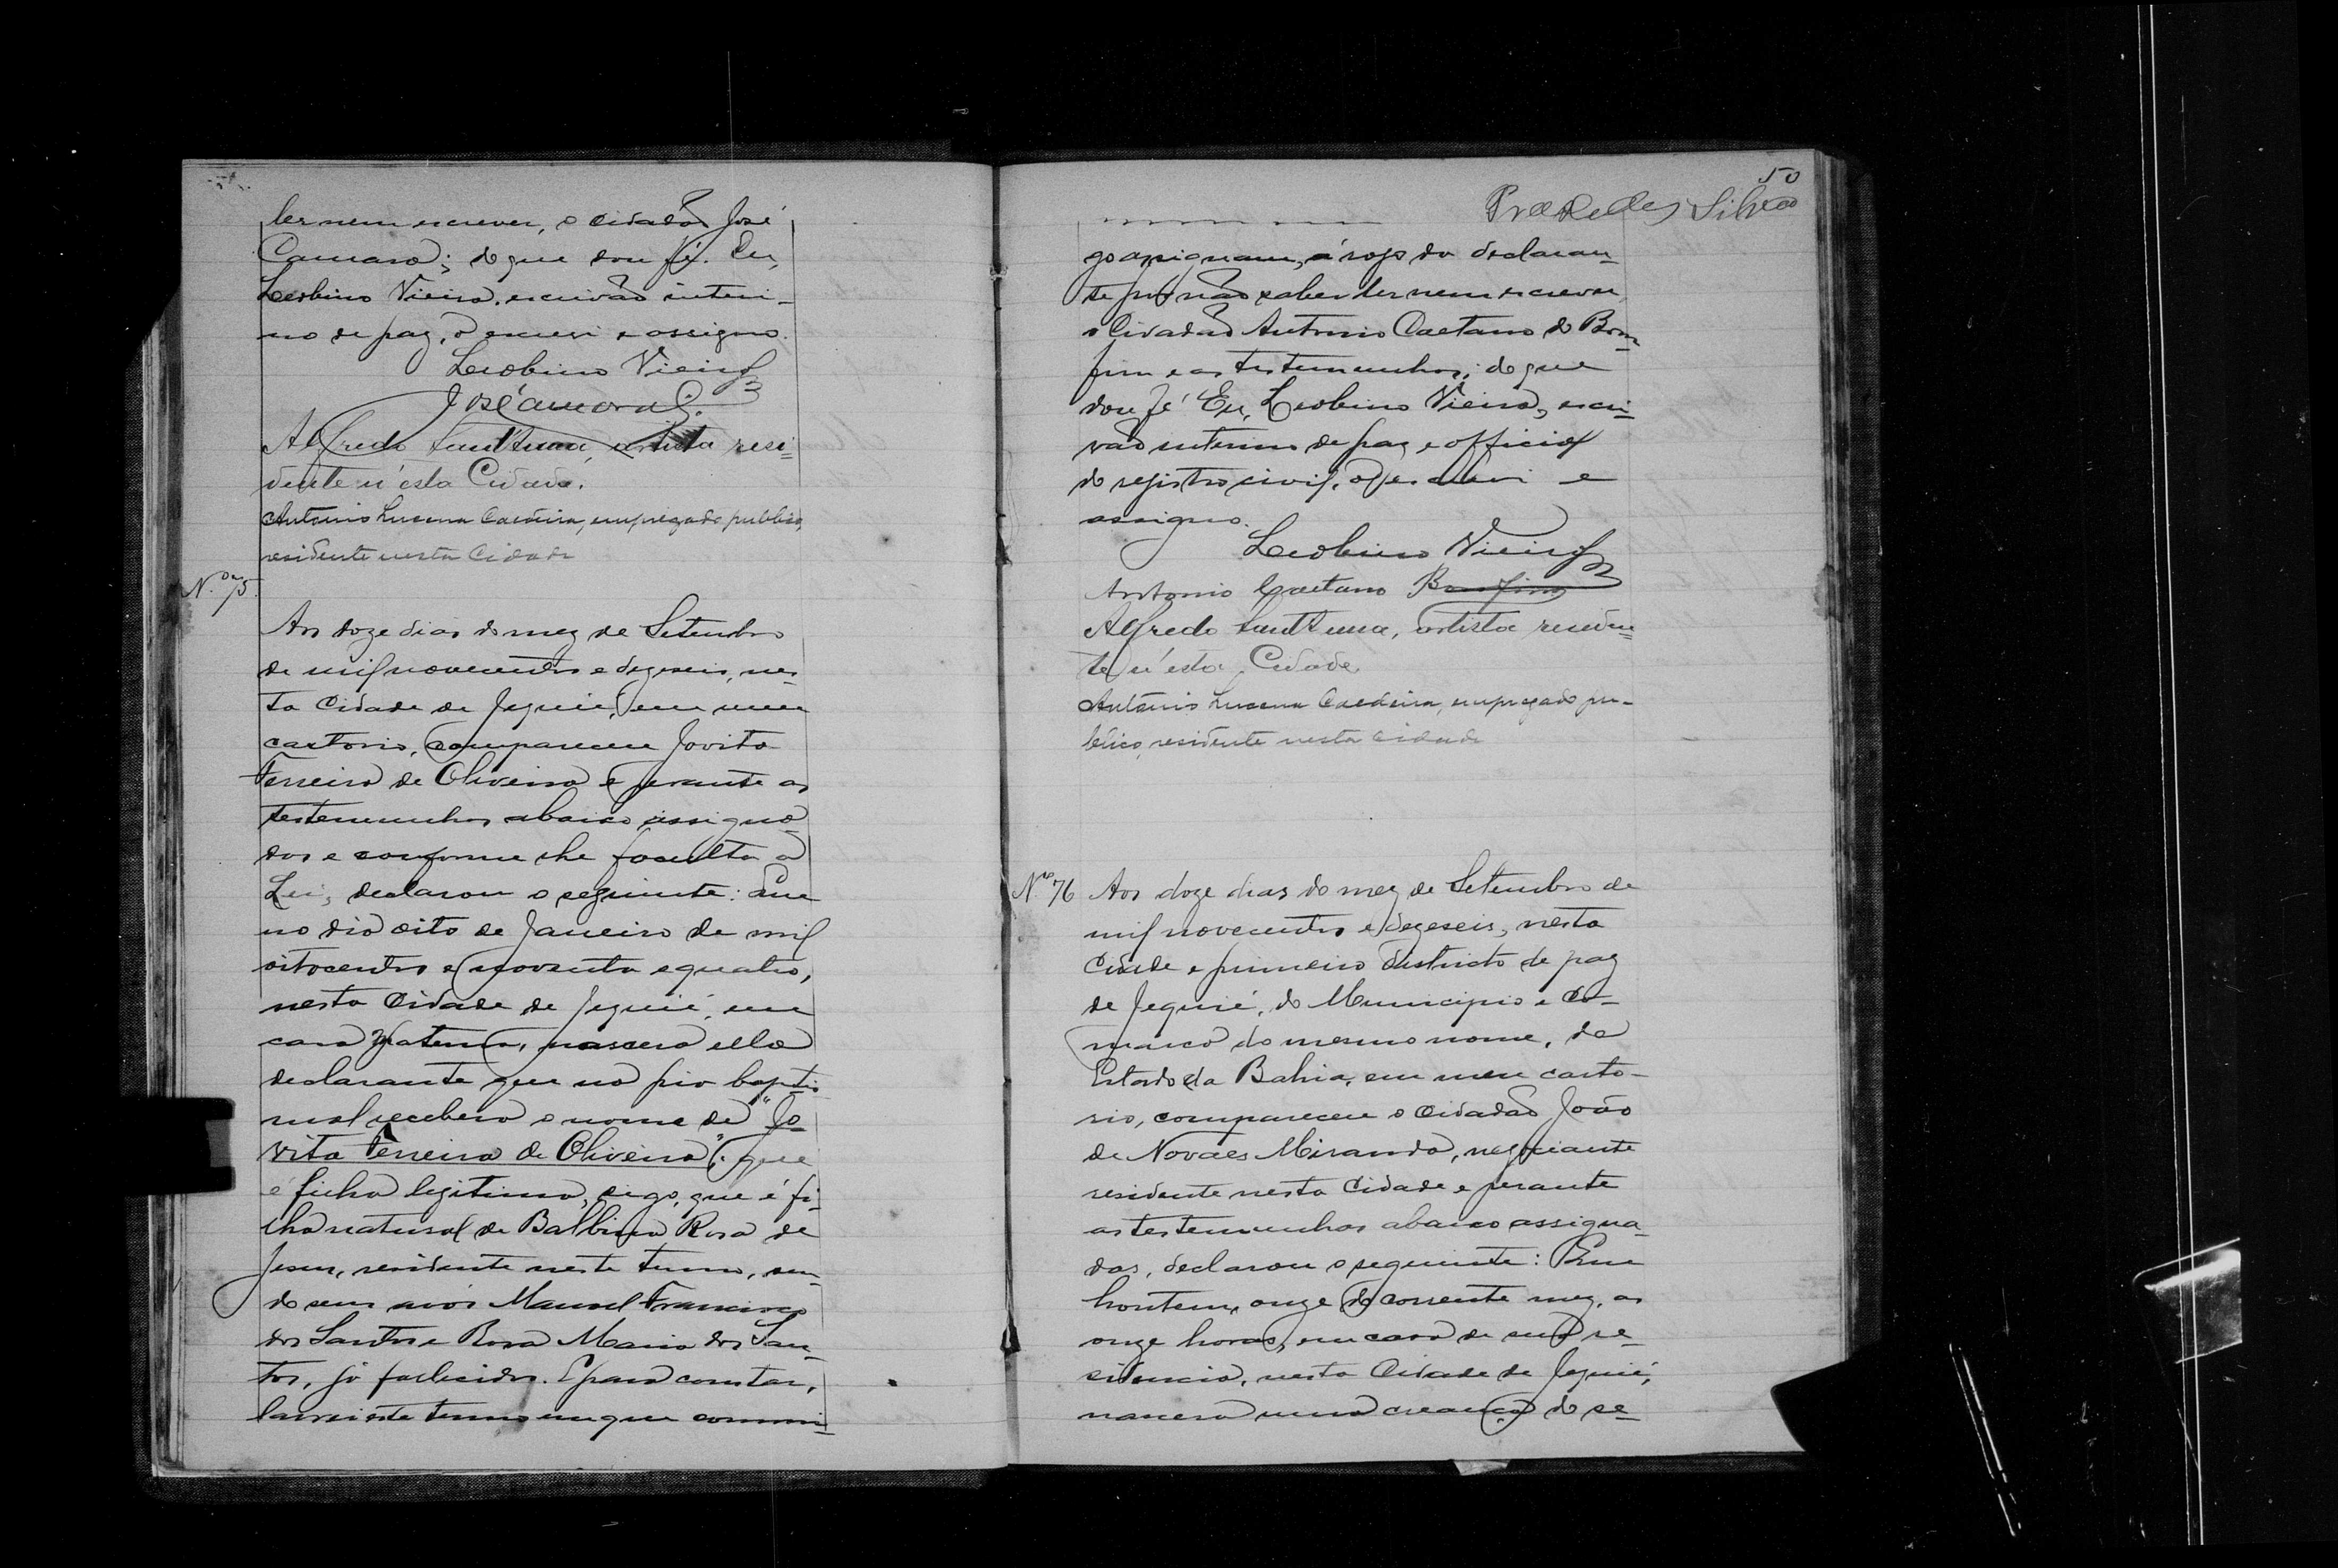 ler nem escrever, o cidadão José
Camara; do que dou fé. Eu,
Leobino Vieira, escrivão interi-
no de paz, o escrevi e assigno.
Leobino Vieira
José
Alfredo Sant'Anna, artista resi-
dente n'esta Cidade.
Antonio Lucena Caldeira, empregado publico,
residente nesta Cidade
N.º 75.
Aos doze dias do mez de Setembro
de mil novecentos e dezeseis, nes-
ta Cidade de Jequié, em meu
cartorio, compareceu Jovita
Ferreira de Oliveira e perante as
testemunhas abaixo assigna-
das e conforme lhe faculta a
Lei, declarou o seguinte: Que
no dia oito de Janeiro de mil
oitocentos e noventa e quatro,
nesta Cidade de Jequié, em
casa paterna, nascera ella
declarante que na pia baptis
mal recebera o nome de "Jo-
vita Ferreira de Oliveira"; que
é filha legitima, digo, que é fi-
lha natural de Balbina Rosa de
Jesus, residente neste termo, sen-
do seus avós Manoel Francisco
dos Santos e Rosa Maria dos San-
tos, já fallecidos. E para constar,
lavrei este termo em que commi-
50
Silva
go assignam, á rogo da declaran-
te por não saber ler nem escrever
o Cidadão Antonio Caetano do Bom-
fim e as testemunhas; do que
dou fé. Eu, Leobino Vieira, escri-
vão interino de paz e official
do registro civil, o escrevi e
assigno.
Leobino Vieira
Antonio Caetano Bomfim
Alfredo Sant'Anna, artista residen-
te n'esta Cidade
Antonio Lucena Caldeira, empregado pu-
blico, residente nesta Cidade
N.º 76 Aos doze dias do mez de Setembro de
mil novecentos e dezeseis, nesta
Cidade e primeiro districto de paz
de Jequié, do Municipio e Co-
marca do mesmo nome, do
Estado da Bahia, em meu carto-
rio, compareceu o Cidadão João
de Novaes Miranda, negociante
residente nesta Cidade e perante
as testemunhas abaixo assigna-
das, declarou o seguinte: Que
hontem, onze do corrente mez, as
onze horas, em casa de sua re-
sidencia, nesta Cidade de Jequié,
nascera uma creança do se-